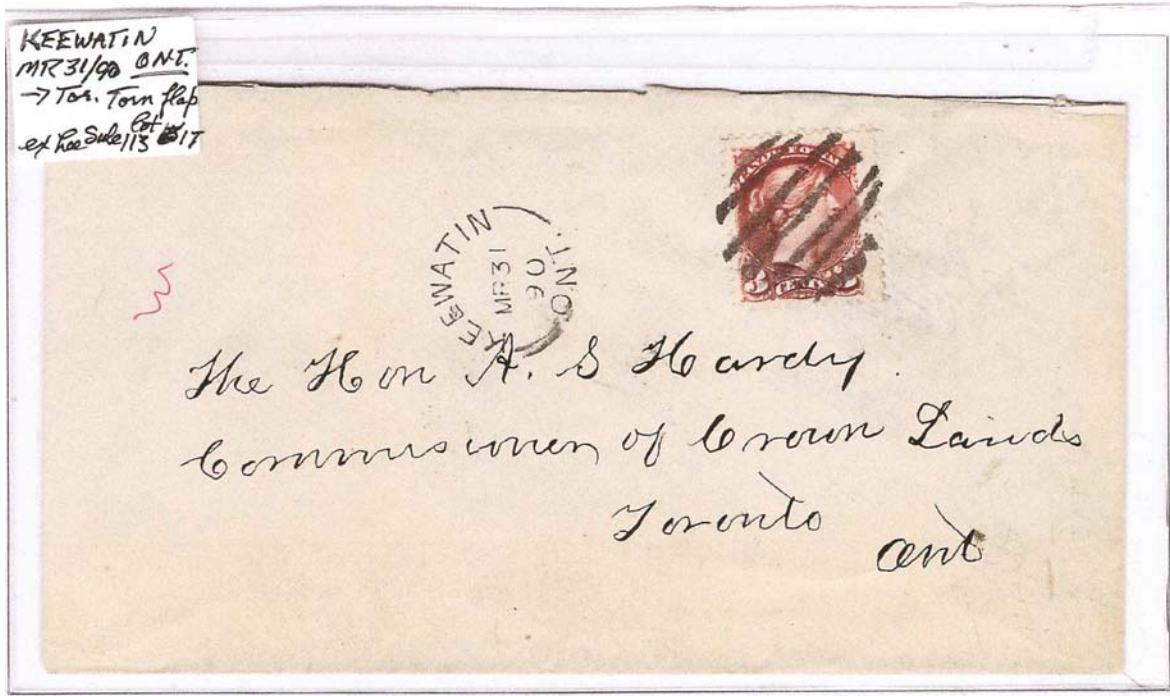 KEEWATIN
MR 31/90 ONT.
→ Tor. Torn flap
ex Lee Sale 113 lot 17
KEEWATIN
MR 31
90
ONT.
3 CENTS 3
The Hon A. S Hardy.
Commissioner of Crown Lands
Toronto
Ont